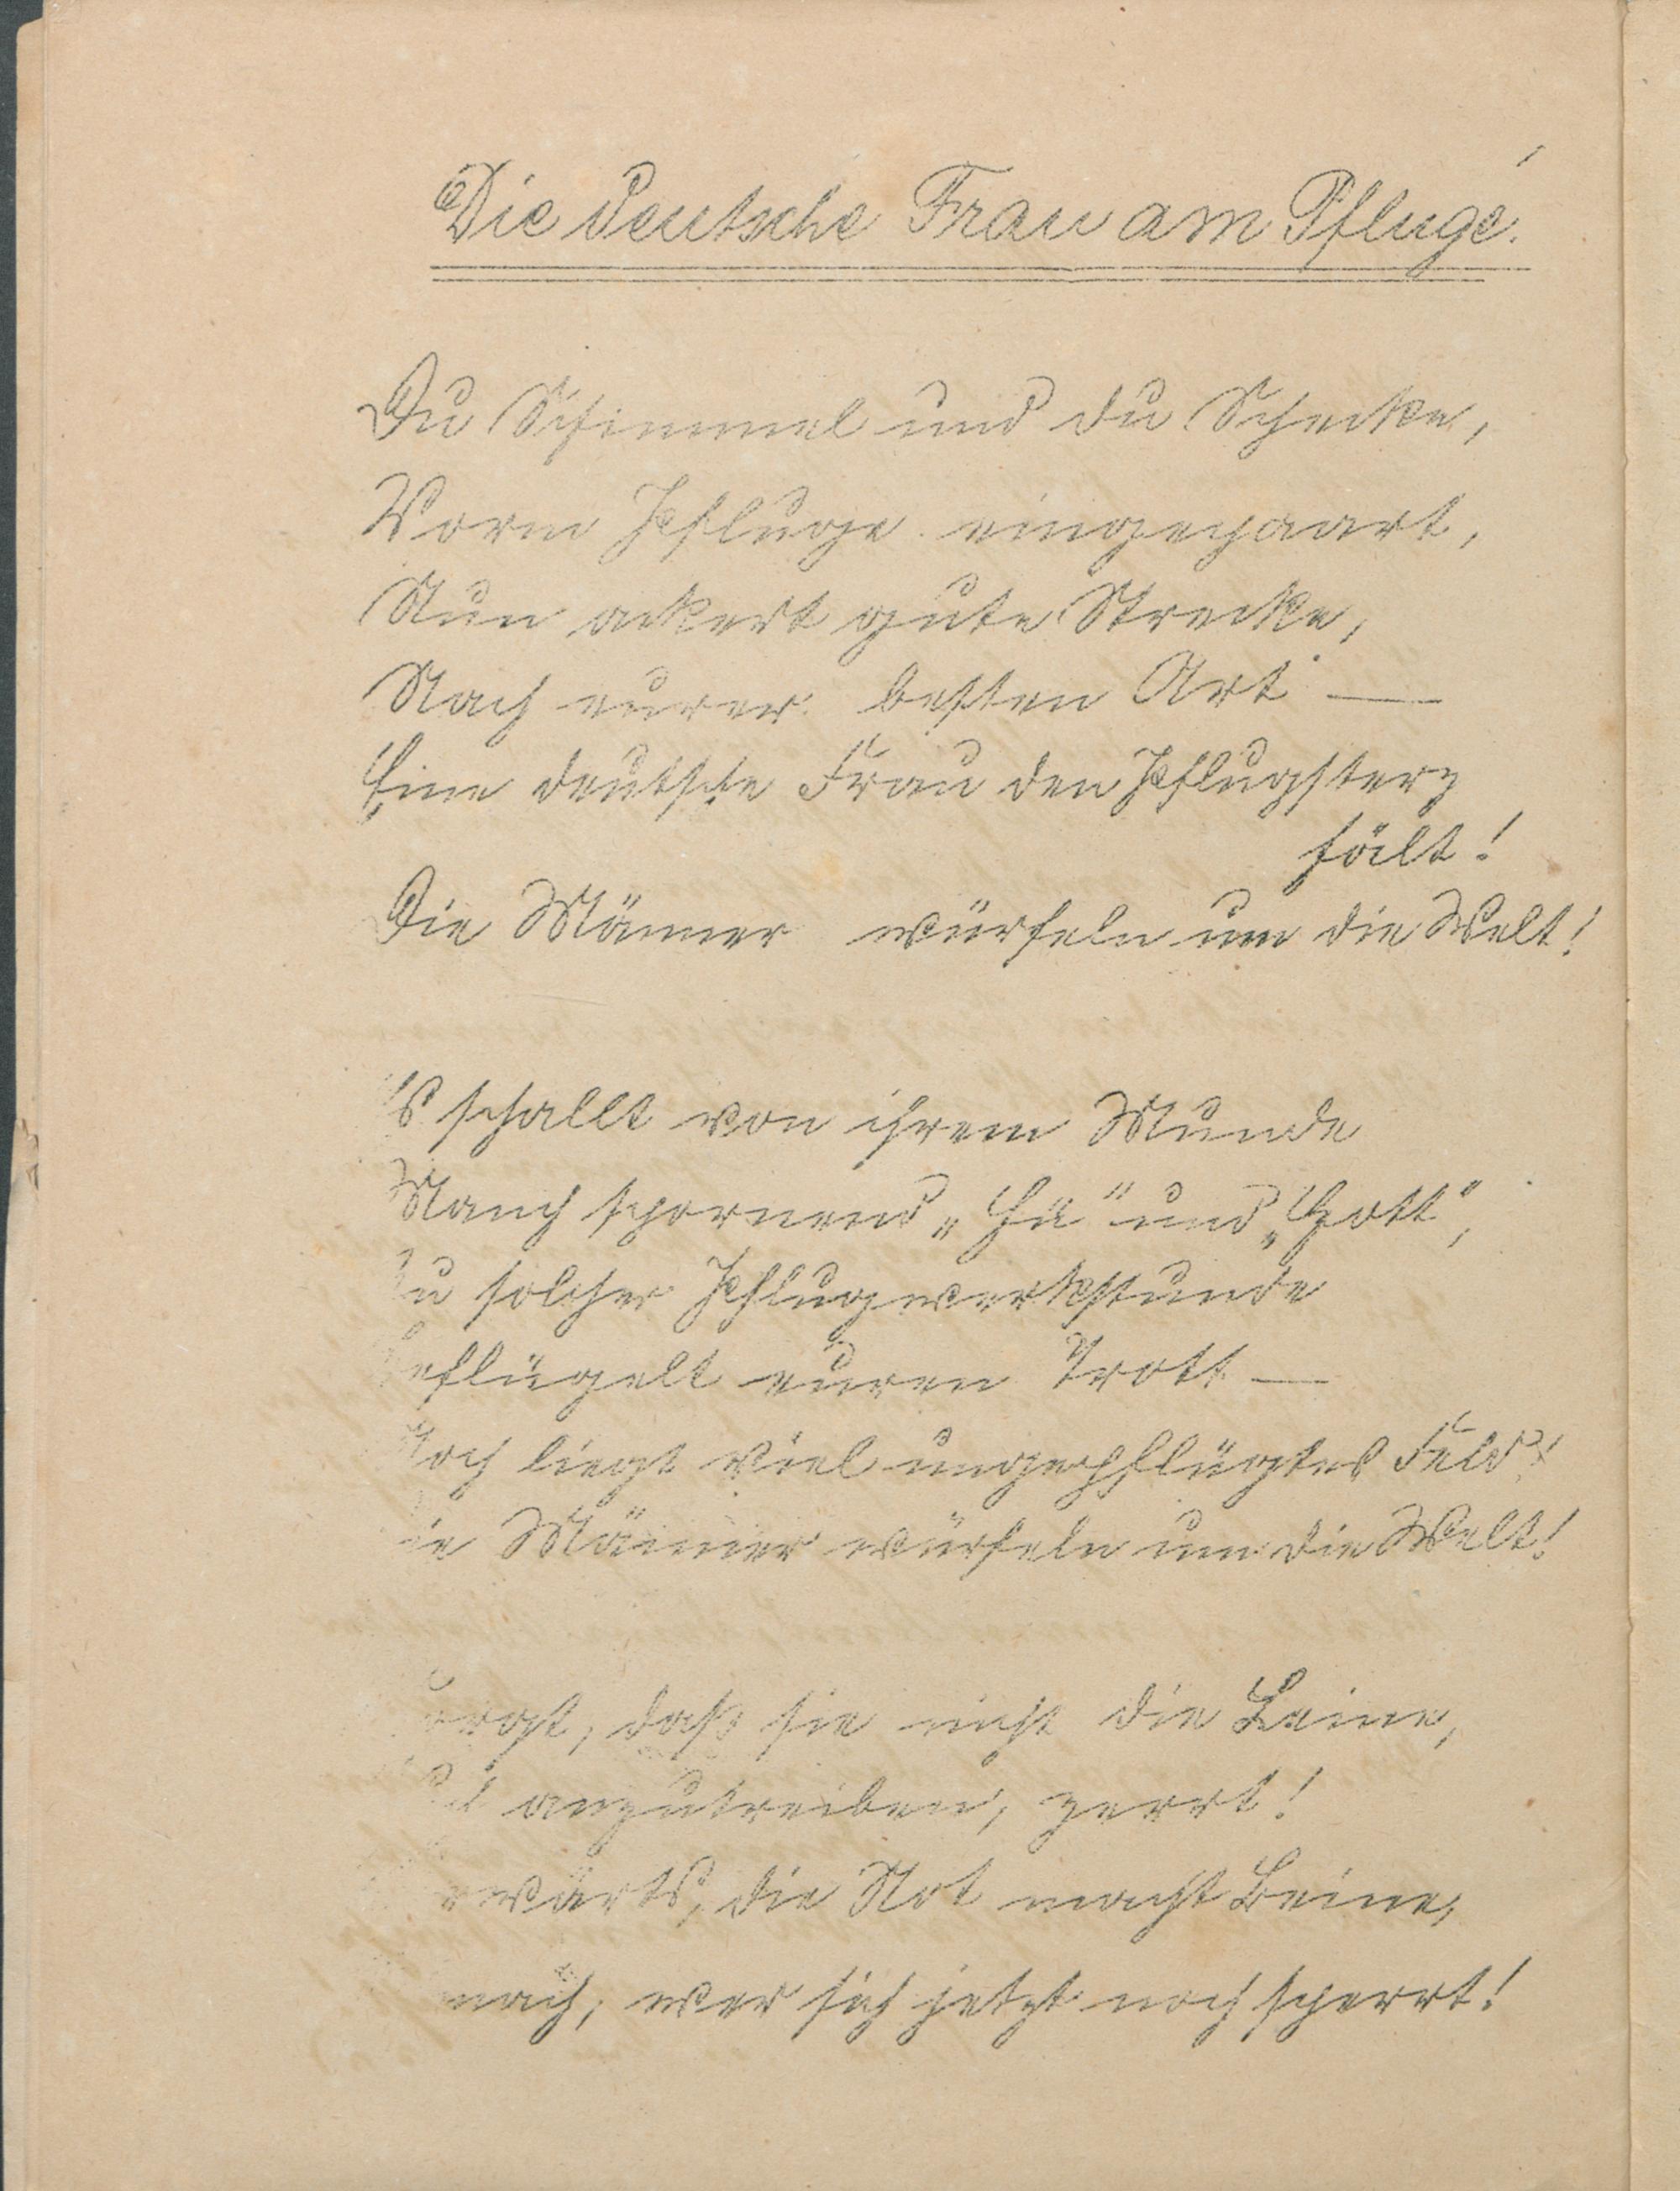 Die deutsche Frau am Pfluge!
Du Schimmel und du Schecke,
Vorm Pfluge eingepaart,
Nun ackert gute Strecke,
Nach eurer besten Art —
Eine deutsche Frau den Pflugsterz
hält!
Die Männer würfeln um die Welt!
's schallt von ihrem Munde
Manch spornend „Hü“ und „Hott“,
Zu solcher Pflugwerkstunde
Beflügelt euren Trott —
Noch liegt viel ungepflügtes Feld!
Die Männer würfeln um die Welt!
Sorgt, daß sie nicht die Leine,
anzutreiben, zerrt!
die Not macht Beine,
wer sich jetzt noch sperrt!